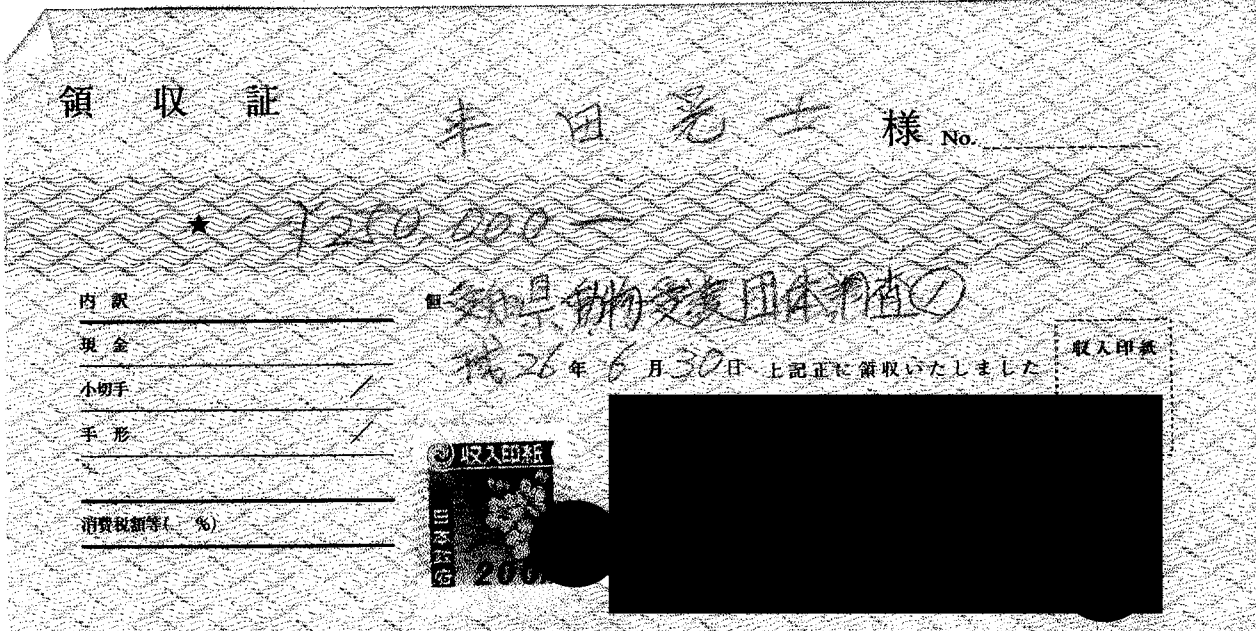 領 収 証 半田晃士 様 No.
★ ¥250,000―
内 訳
現 金
小切手 /
手 形 /
消費税額等( %)
但 愛知県動物愛護団体調査①
平成26年6月30日 上記正に領収いたしました
収入印紙
収入印紙
200